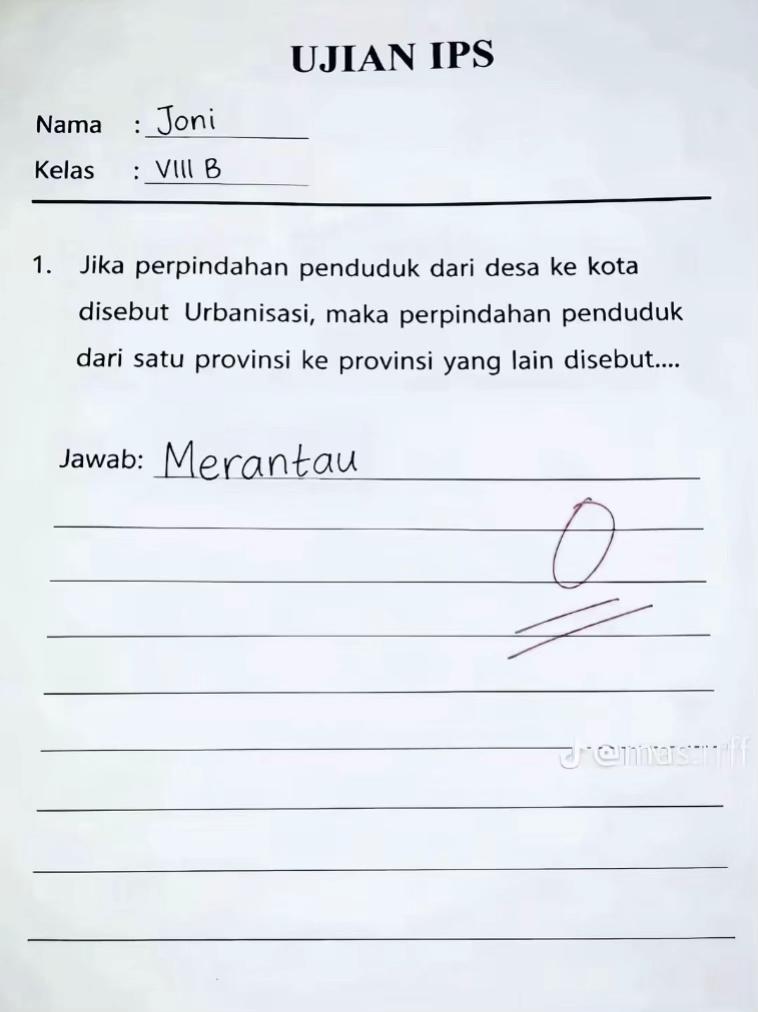 UJIAN IPS
Nama : Joni
Kelas : VIII B
1. Jika perpindahan penduduk dari desa ke kota
disebut Urbanisasi, maka perpindahan penduduk
dari satu provinsi ke provinsi yang lain disebut....
Jawab: Merantau
0